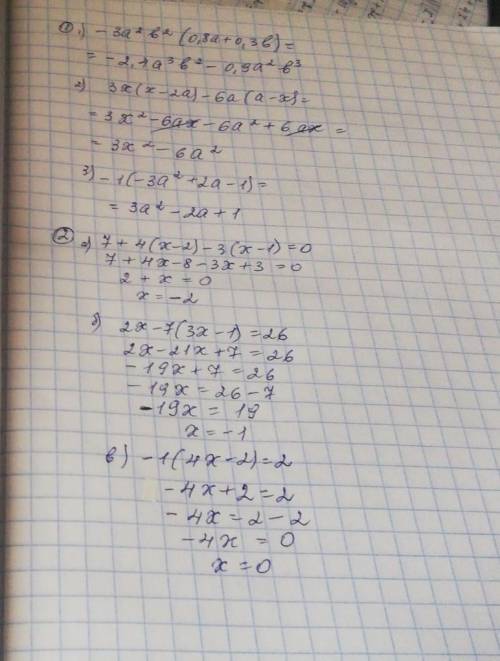 ① 1) -3a²b²(0,8a+0,3b)=
= -2,4a³b² - 0,9a²b³
2) 3x(x-2a)-6a(a-x)=
= 3x² - 6ax - 6a² + 6ax =
= 3x² - 6a²
3) -1(-3a²+2a-1)=
= 3a² - 2a + 1
② а) 7+4(x-2)-3(x-1)=0
7+4x-8-3x+3=0
2+x=0
x=-2
б) 2x-7(3x-1)=26
2x-21x+7=26
-19x+7=26
-19x=26-7
-19x=19
x=-1
в) -1(4x-2)=2
-4x+2=2
-4x=2-2
-4x=0
x=0